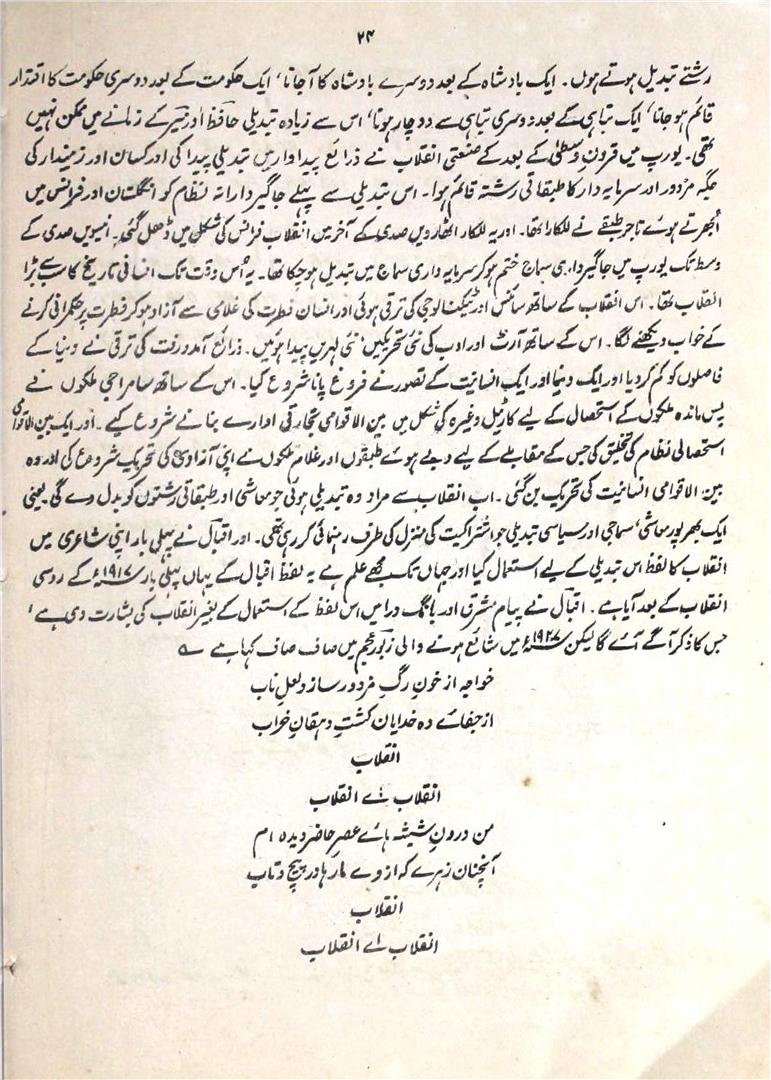 ۲۴
رشتے تبدیل ہوتے ہوں۔ ایک بادشاہ کے بعد دوسرے بادشاہ کا آجانا، ایک حکومت کے بعد دوسری حکومت کا اقتدار
قائم ہو جانا، ایک تباہی کے بعد دوسری تباہی سے دوچار ہونا، اس سے زیادہ تبدیلی حافظ اور میر کے زمانے میں ممکن نہیں
تھی۔ یورپ میں قرونِ وسطیٰ کے بعد کے صنعتی انقلاب نے ذرائع پیداوار میں تبدیلی پیدا کی اور کسان اور زمیندار کی
جگہ مزدور اور سرمایہ دار کا طبقاتی رشتہ قائم ہوا۔ اس تبدیلی سے پہلے جاگیردارانہ نظام کو انگلستان اور فرانس میں
اُبھرتے ہوئے تاجر طبقے نے للکارا تھا۔ اور یہ للکار اٹھارویں صدی کے آخر میں انقلاب فرانس کی شکل میں ڈھل گئی۔ انیسویں صدی کے
وسط تک یورپ میں جاگیرداری سماج ختم ہو کر سرمایہ داری سماج میں تبدیل ہو چکا تھا۔ یہ اُس وقت تک انسانی تاریخ کا سب سے بڑا
انقلاب تھا۔ اس انقلاب کے ساتھ سائنس اور ٹیکنالوجی کی ترقی ہوئی اور انسان فطرت کی غلامی سے آزاد ہو کر فطرت پر حکمرانی کرنے
کے خواب دیکھنے لگا۔ اس کے ساتھ آرٹ اور ادب کی نئی تحریکیں، نئی لہریں پیدا ہوئیں۔ ذرائع آمدورفت کی ترقی نے دنیا کے
فاصلوں کو کم کر دیا اور ایک دنیا اور ایک انسانیت کے تصور نے فروغ پانا شروع کیا۔ اس کے ساتھ سامراجی ملکوں نے
پس ماندہ ملکوں کے استحصال کے لیے کارٹل وغیرہ کی شکل میں بین الاقوامی تجارتی ادارے بنانے شروع کیے۔ اور ایک بین الاقوامی
استحصالی نظام کی تخلیق کی جس کے مقابلے کے لیے دبے ہوئے طبقوں اور غلام ملکوں نے اپنی آزادی کی تحریک شروع کی اور وہ
بین الاقوامی انسانیت کی تحریک بن گئی۔ اب انقلاب سے مراد وہ تبدیلی ہوئی جو معاشی اور طبقاتی رشتوں کو بدل دے گی یعنی
ایک بھرپور معاشی، سماجی اور سیاسی تبدیلی جو اشتراکیت کی منزل کی طرف رہنمائی کر رہی تھی۔ اور اقبال نے پہلی بار اپنی شاعری میں
انقلاب کا لفظ اس تبدیلی کے لیے استعمال کیا اور جہاں تک مجھے علم ہے یہ لفظ اقبال کے یہاں پہلی بار ۱۹۱۷ء کے روسی
انقلاب کے بعد آیا ہے۔ اقبال نے پیام مشرق اور بانگ درا میں اس لفظ کے استعمال کے بغیر انقلاب کی بشارت دی ہے،
جس کا ذکر آگے آئے گا لیکن ۱۹۲۷ء میں شائع ہونے والی زبورِ عجم میں صاف صاف کہا ہے ؎
خواجہ از خونِ رگِ مزدور سازد لعلِ ناب
از جفائے دہ خدایان کشتِ دہقان خراب
انقلاب
انقلاب اے انقلاب
من درونِ شیشہ ہائے عصرِ حاضر دیدہ ام
آنچنان زہرے کہ از وے مار ہا در پیچ و تاب
انقلاب
انقلاب اے انقلاب